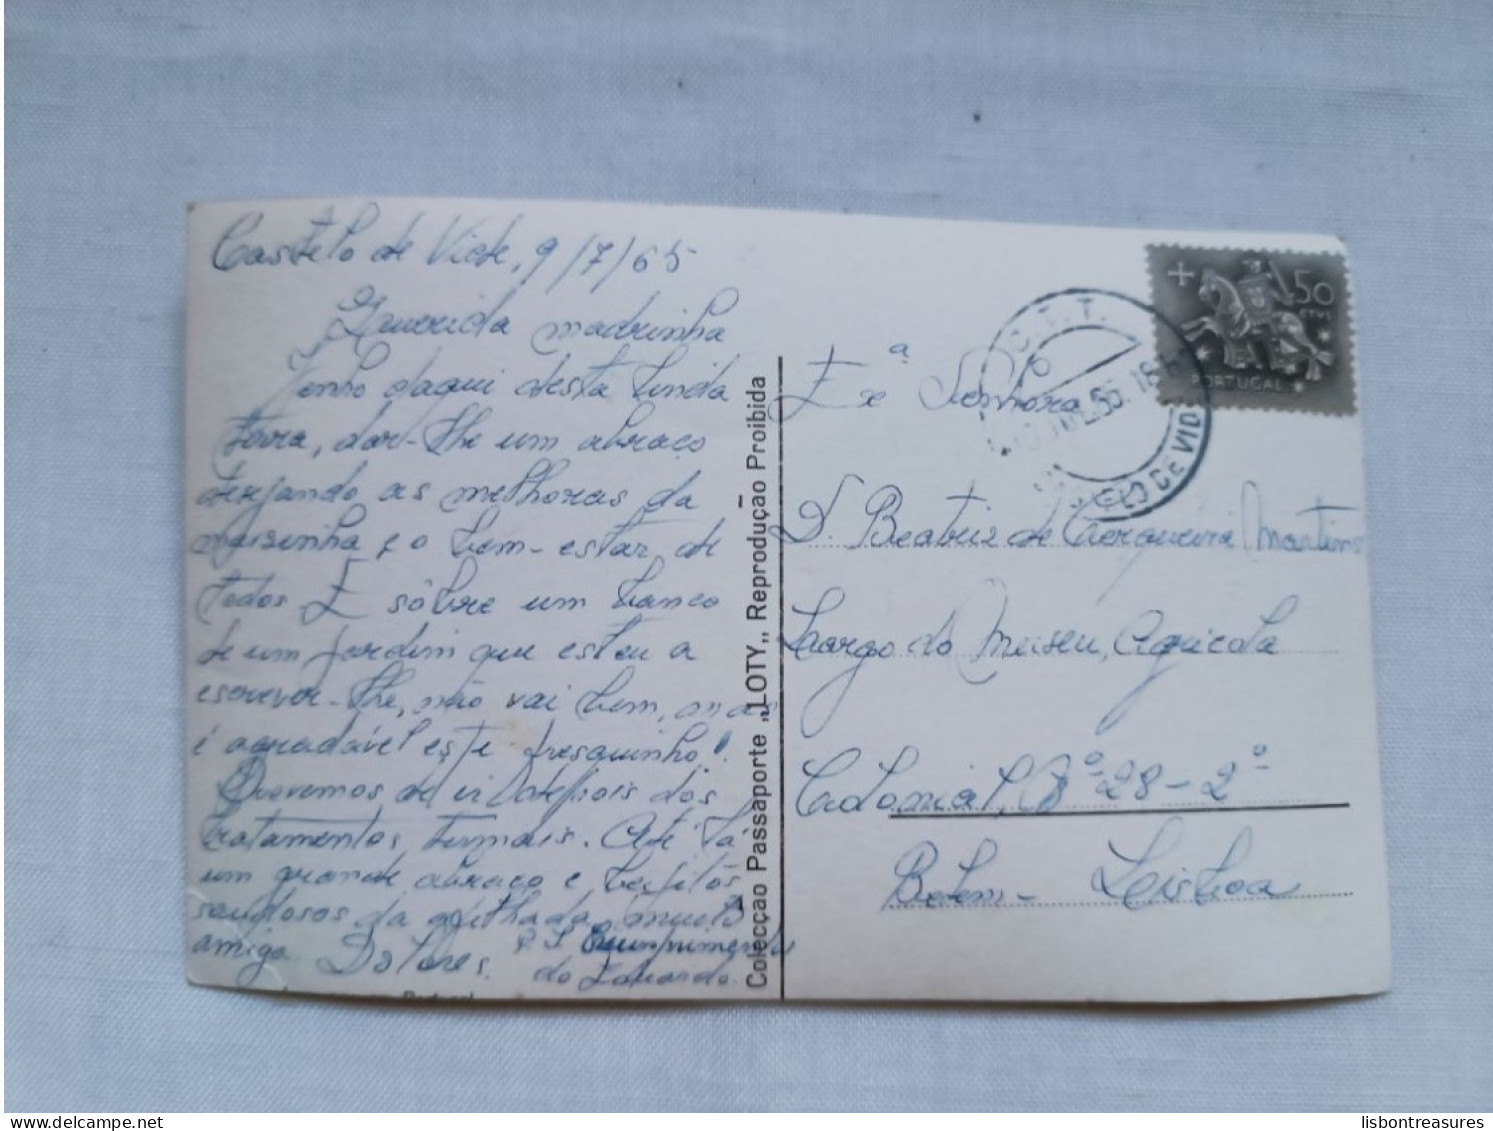 Castelo de Vide, 9/7/65
Querida madrinha
Venho daqui desta linda
terra, dar-lhe um abraço
desejando as melhoras da
mãesinha, e o bem-estar de
todos. É sôbre um banco
de um jardim que estou a
escrever-lhe, não vai bem, mas
é agradável este fresquinho!
Devemos de ir depois dos
tratamentos termais. Até lá
um grande abraço e beijitos
saudosos da afilhada muito
amiga Dolores.
P.S. Cumprimentos
do Eduardo.
Colecção Passaporte „LOTY„ Reprodução Proibida
C.T.T.
65. 18
ELO DE VID
+ 50
CTVS
PORTUGAL
Exª Senhora
D. Beatriz de Cerqueira Martins
Largo do Museu, Agricola
Colonial, Nº 28-2º
Belem - Lisboa
Portugal
lisbontreasures.com